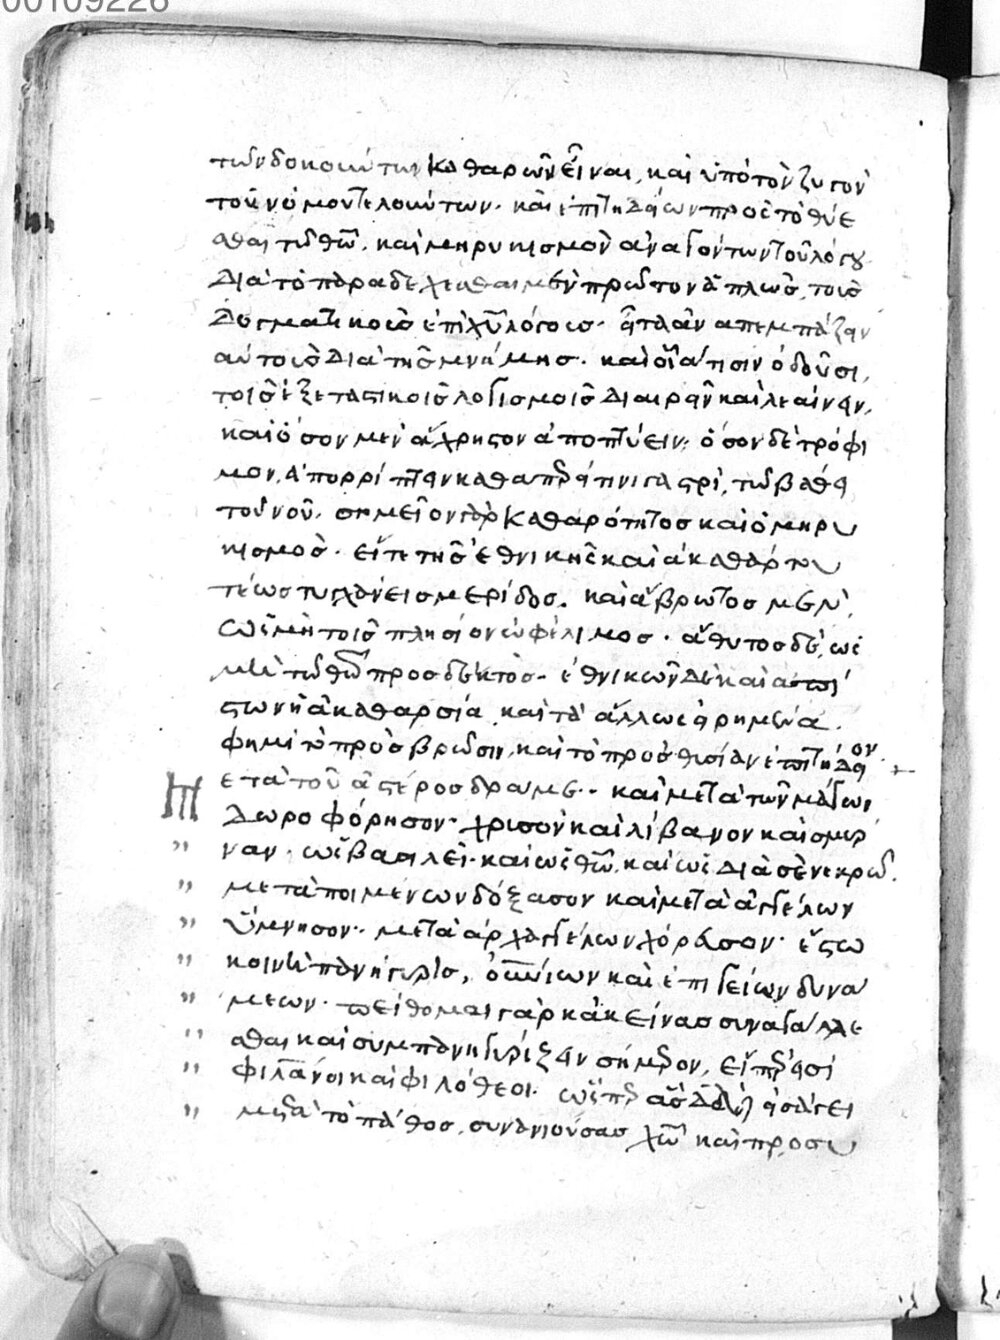 00109226
τῶν δοκούντων καθαρῶν εἶναι, καὶ ὑπὸ τὸν ζυγὸν
τοῦ νόμου τελούντων. καὶ ἐπιτηδείων πρὸς τὸ θύε
σθαι τῶ θῶ. καὶ μηρυκισμὸν ἀναγόντων τοῦ λόγου
διὰ τὸ παραδέχεσθαι μὲν πρῶτον ἁπλῶς, τοῖς
δογματικοῖς ἐπὶ χῶ λόγοις. εἶτ' ἀναπεμπάζειν
αὐτοὺς διὰ τῆς μνήμης. καὶ οἷά τισιν ὀδοῦσι,
τοῖς ἐξεταστικοῖς λογισμοῖς διαιρεῖν καὶ λεαίνειν,
καὶ ὅσον μὲν ἄχρηστον ἀποπτύειν, ὅσον δὲ τρόφι
μον, ἀπορρίπτειν καθάπερ τινι γαστρὶ, τῶ βάθει
τοῦ νοῦ. σημεῖον γὰρ καθαρότητος καὶ ὁ μηρυ
κισμός. εἴτε τῆς ἐθνικῆς καὶ ἀκαθάρτου
τέως τυγχάνεις μερίδος. καὶ ἄβρωτος μὲν,
ὡς μὴ τοῖς πλησίον ὠφέλιμος. ἄθυτος δὲ, ὡς
μὴ τῶ θῶ προσδεκτός. ἐθνικῶν δὲ καὶ ἀπί
στων ἡ ἀκαθαρσία καὶ τὰ ἄλλως εἰρημένα.
φημὶ τὸ πρὸς βρῶσιν, καὶ τὸ πρὸς θυσίαν ἐπιτήδειον.
Μετὰ τοῦ ἀστέρος δράμε. καὶ μετὰ τῶν μάγων
δωροφόρησον. χρυσὸν καὶ λίβανον καὶ σμύρ
ναν. ὡς βασιλεῖ. καὶ ὡς θῶ. καὶ ὡς διὰ σὲ νεκρῶ.
μετὰ ποιμένων δόξασον καὶ μετὰ ἀγγέλων
ὕμνησον. μετὰ ἀρχαγγέλων χόρευσον. ἔστω
κοινὴ πανήγυρις, οὐνίων καὶ ἐπιγείων δυνά
μεων. πείθομαι γὰρ κἀκείνας συναγάλλε
σθαι καὶ συμπανηγυρίζειν σήμερον, εἴπερ εἰσὶ
φιλάνοι καὶ φιλόθεοι. ὥσπερ ἃς Δαδ εἰσάγει
μετὰ τὸ πάθος, συνανιούσας χῶ καὶ προσυ